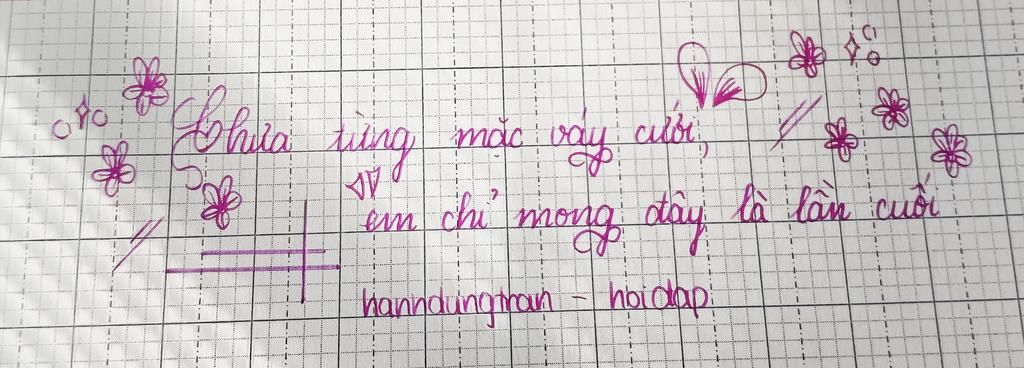 Chưa từng mặc váy cưới,
em chỉ mong đây là lần cuối
hanndungtran - hoidap